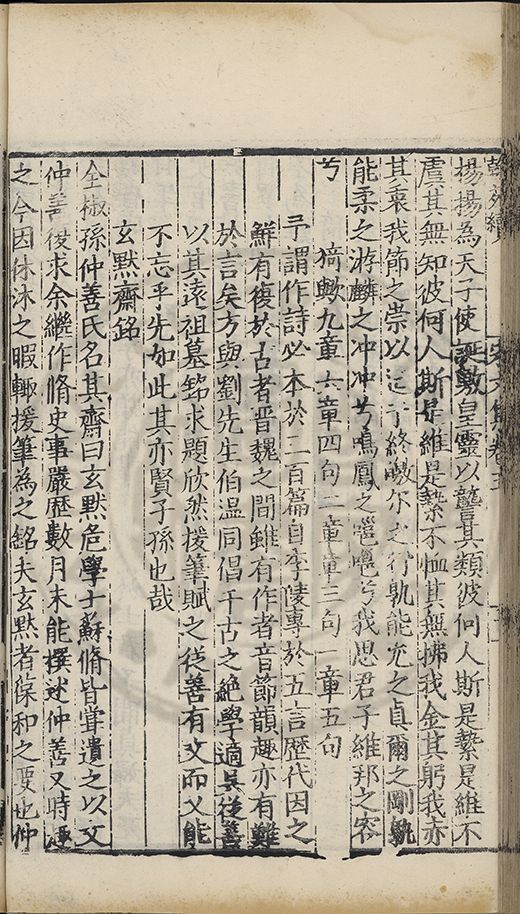 揚揚為天子使誕敷皇靈以讋其類彼何人斯是縶是維不
虞其無知彼何人斯是維是縶不恤其無拂我金其躬我赤
其衷我節之崇以迄于終曒尔之行孰能充之貞爾之剛孰
能柔之游麟之冲冲兮鳴鳳之噰噰兮我思君子維邦之容
兮
猗歟九章六章四句二章章三句一章五句
予謂作詩必本於三百篇自李陵專於五言歴代因之
鮮有復於古者晋魏之間雖有作者音節韻趣亦有難
於言矣方與劉先生伯温同倡千古之絶學適吴從善
以其遠祖墓銘求題欣然援筆賦之從善有文而又能
不忘乎先如此其亦賢子孫也哉
玄默齋銘
全椒孫仲善氏名其齋曰玄默危學士蘇脩皆甞遺之以文
仲善復求余繼作脩史事嚴歴數月未能撰述仲善又時
之今因休沐之暇輙援筆為之銘夫玄默者葆和之要也仲